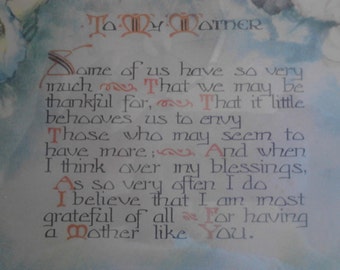 To My Mother
Some of us have so very
much That we may be
thankful for, That it little
behooves us to envy
Those who may seem to
have more; And when
I think over my blessings,
As so very often I do
I believe that I am most
grateful of all For having
a Mother like You.